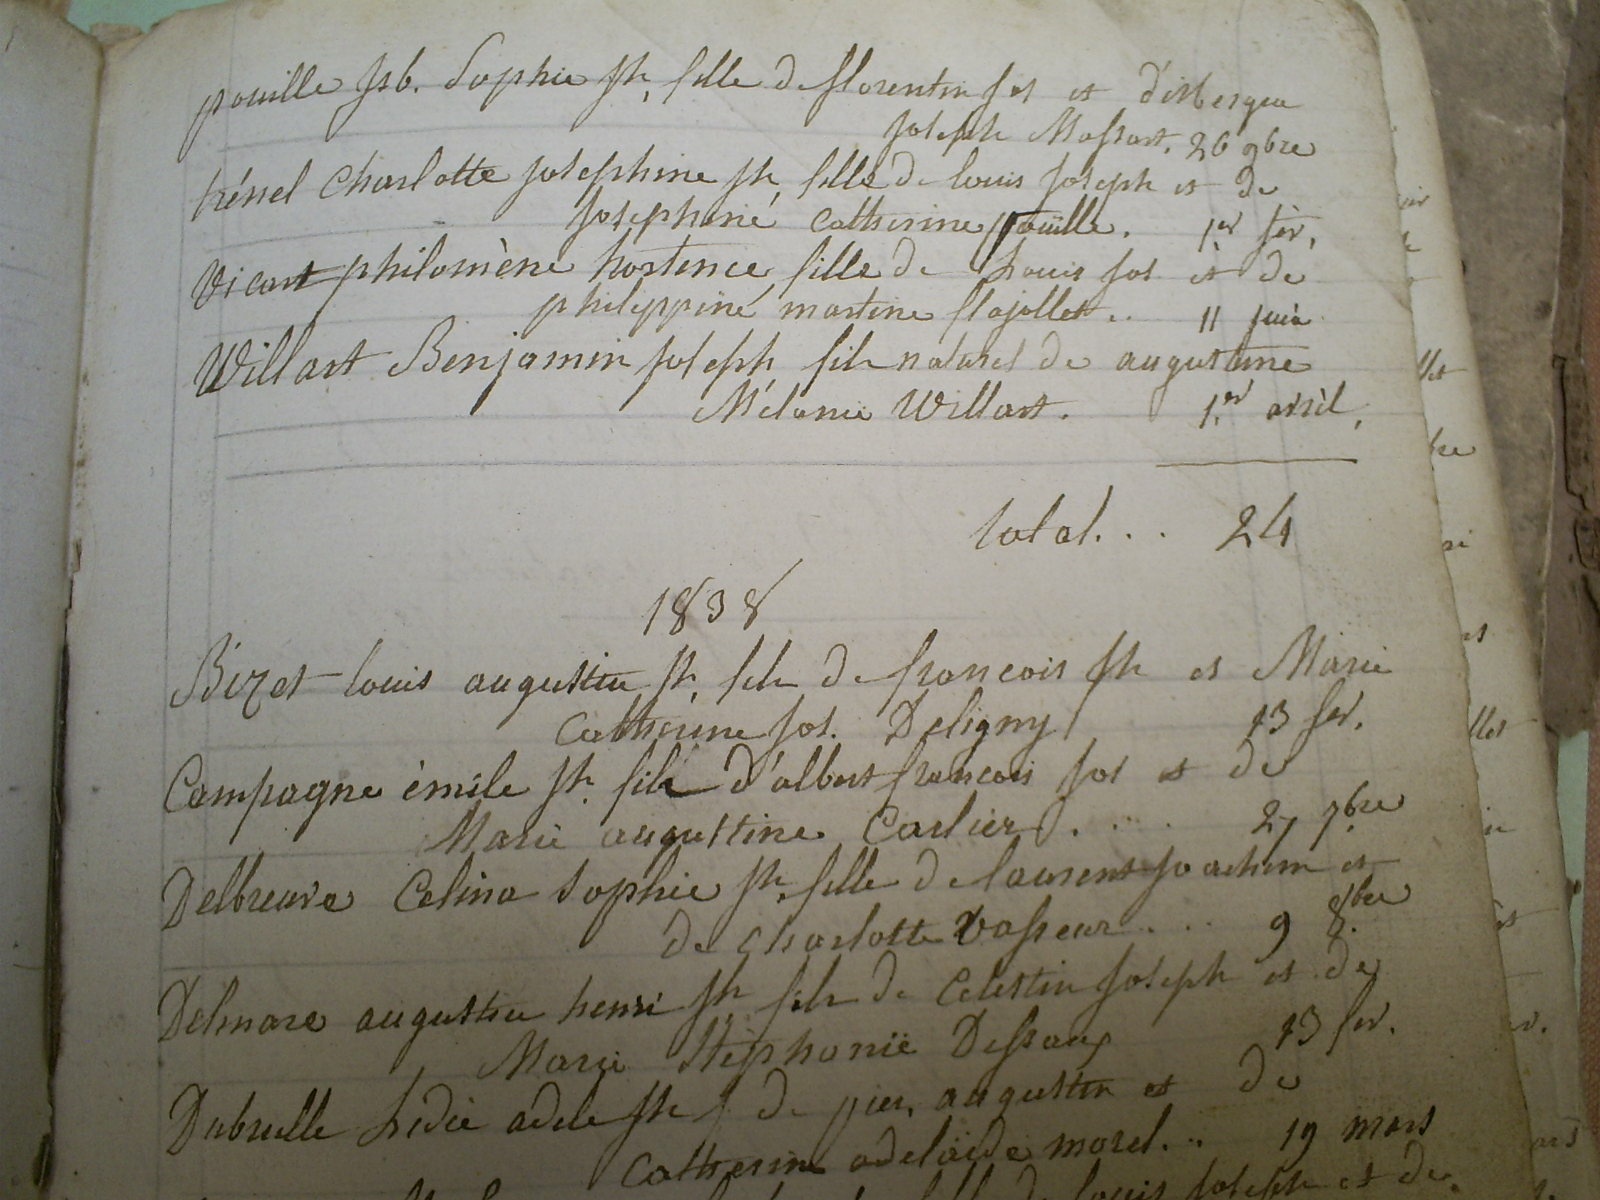 pouille Isb. Sophie Jh, fille de florentin Jos et d'isbergue
Joseph Massart. 26 9bre
hénel Charlotte Josephine Jh fille de louis Joseph et de
Josephine Catherine pouille. 1er fév.
Vicart philomène hortence fille de Louis Jos et de
philippine martine flajollet.. 11 juin
Willart Benjamin Joseph fils naturel de augustine
Mélanie Willart. 1er avril.
total... 24
1838
Bizet louis augustin Jh, fils de francois Jh et Marie
Catherine Jos. Deligny 13 fév.
Campagne émile Jh. fils d'albert francois Jos et de
Marie augustine Carlier.... 27 7bre
Delbreuve Celina Sophie Jh, fille de laurent Joachim et
de Charlotte Vasseur.... 9 8bre
Delmare augustin henri Jh fils de Celestin Joseph et de
Marie Stéphanie Dessaux 13 fév.
Dubrulle Lidie adele Jh f. de pier. augustin et de
Catherine adelaïde morel... 19 mars
louis Joseph et de